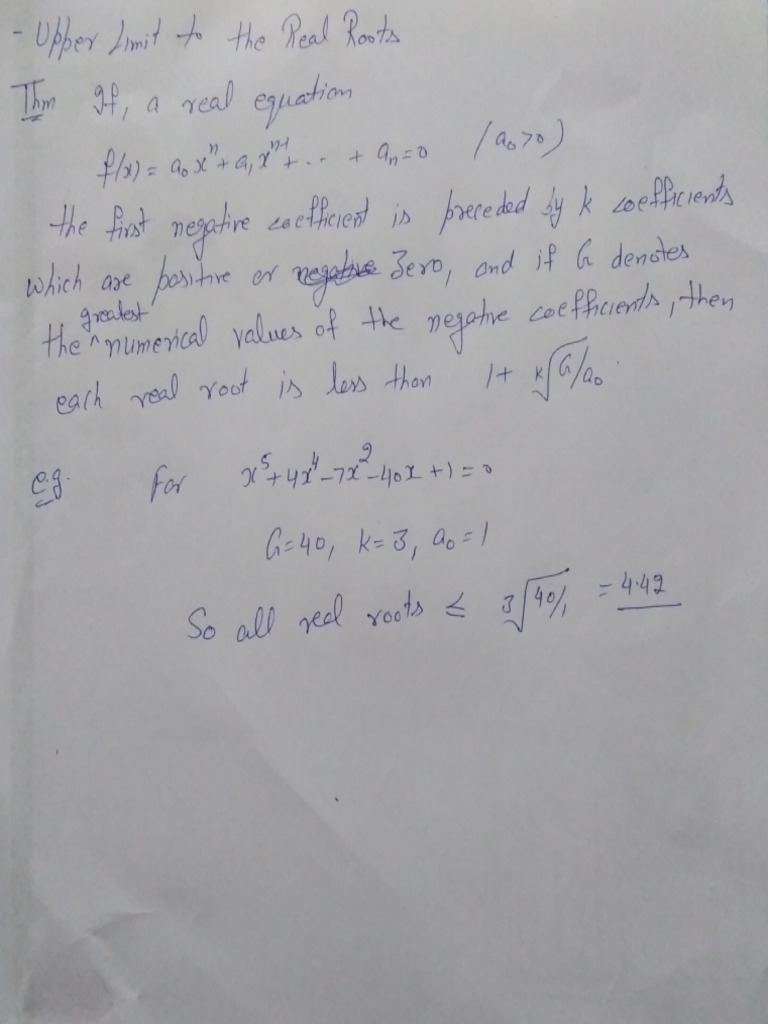 - Upper Limit to the Real Roots
Thm If, a real equation
f(x) = a₀xⁿ + a₁xⁿ⁻¹ + ... + aₙ = 0 (a₀>0)
the first negative coefficient is preceded by k coefficients
which are positive or negative Zero, and if G denotes
the ^greatest numerical values of the negative coefficients, then
each real root is less than 1 + ᵏ√G/a₀.
e.g. For x⁵+4x⁴-7x²-40x+1=0
G=40, k=3, a₀=1
So all real roots ≤ ³√40/1 = 4.42